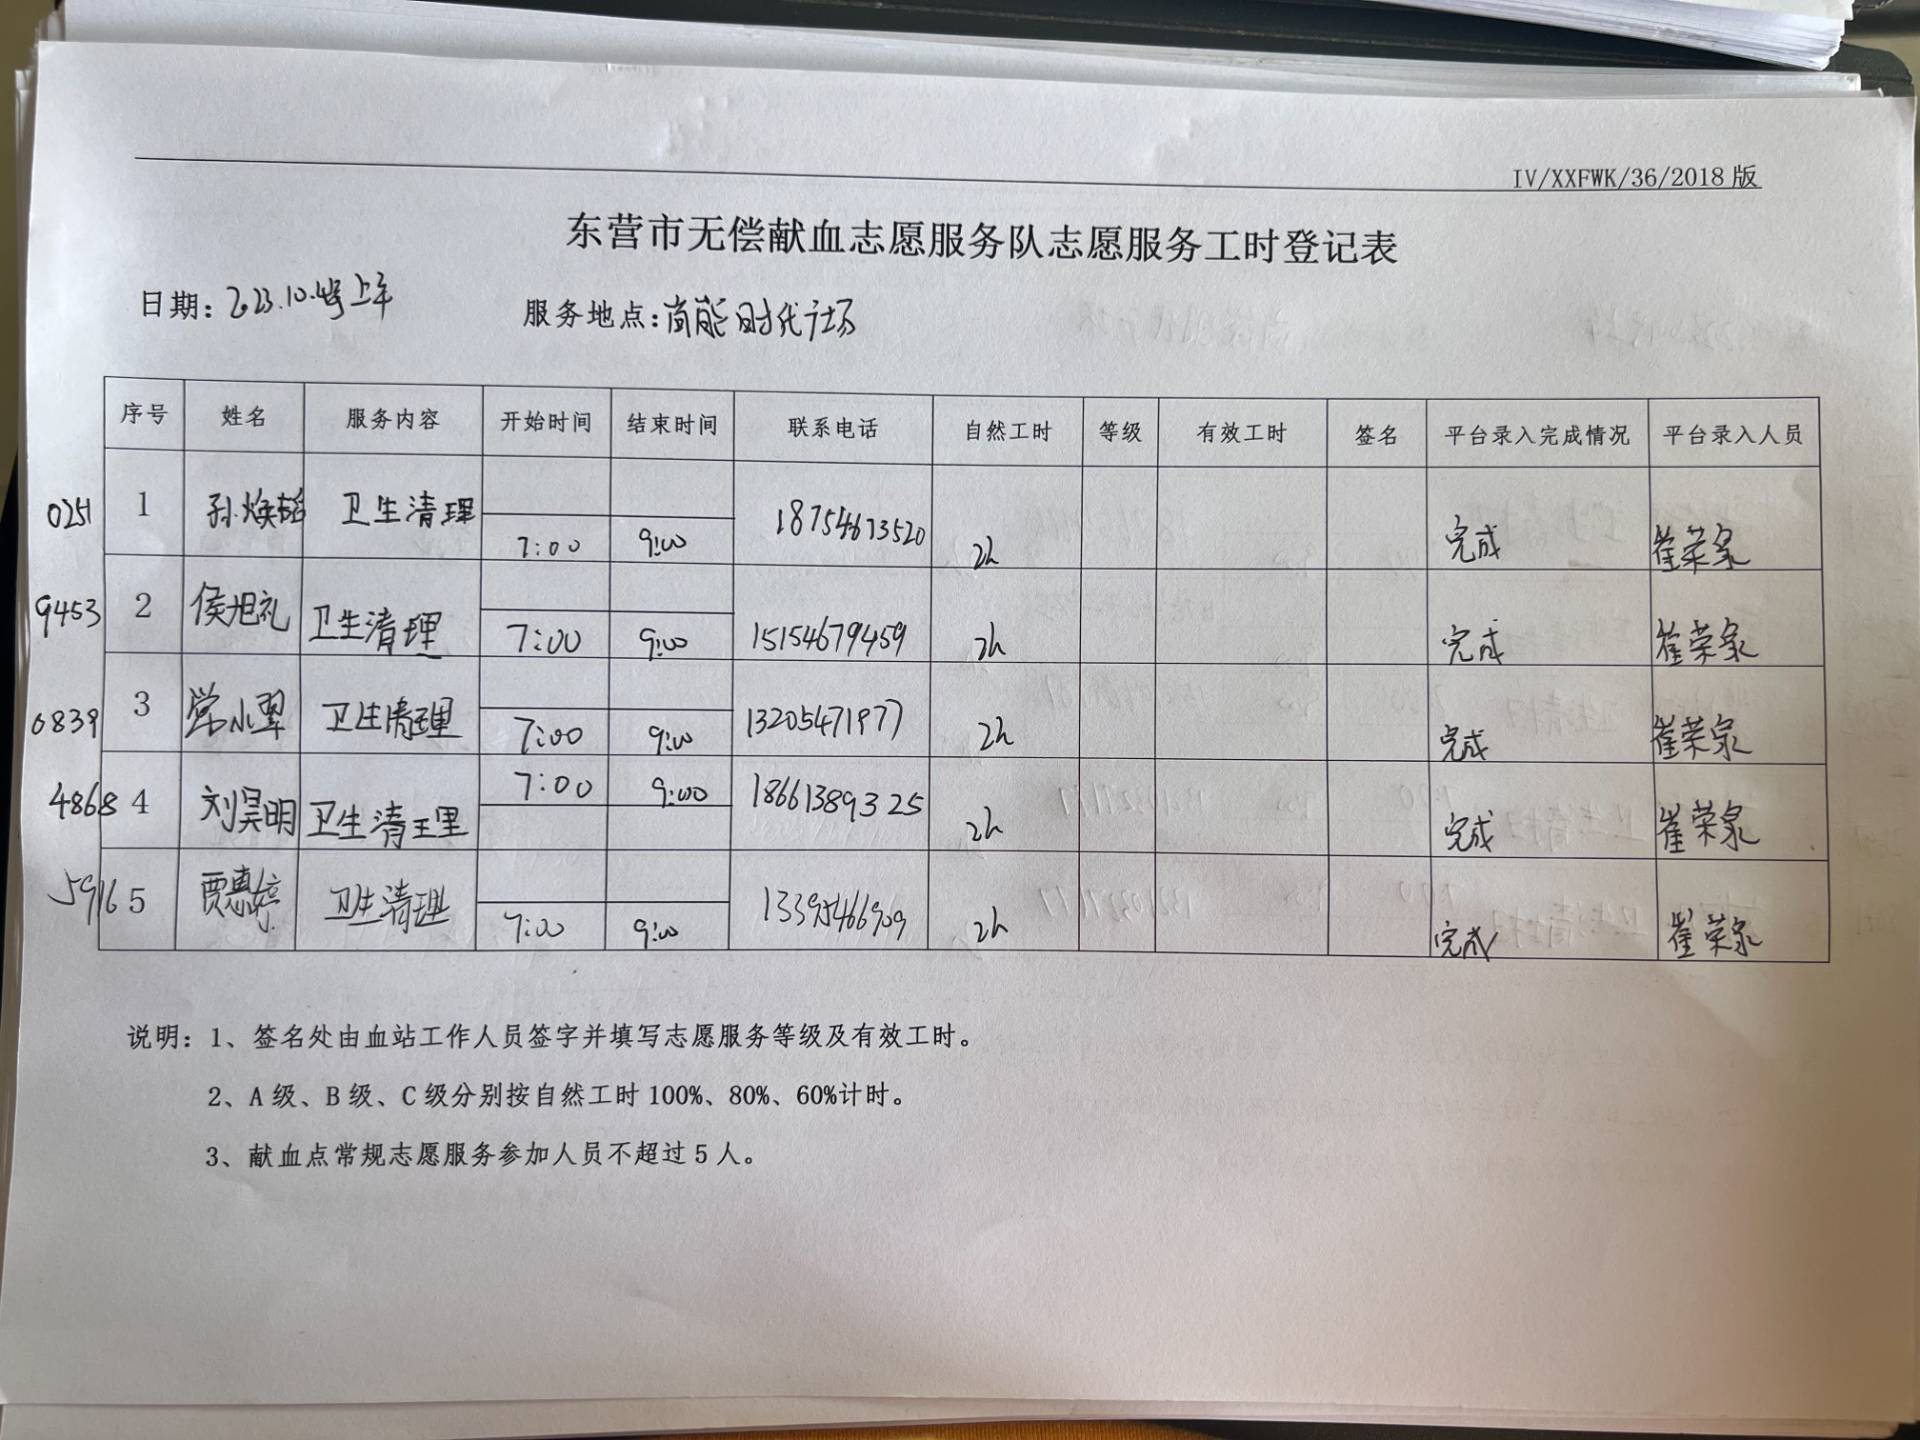 IV/XXFWK/36/2018版
东营市无偿献血志愿服务队志愿服务工时登记表
日期：2023.10.4号上午 服务地点：尚能时代广场
序号 姓名 服务内容 开始时间 结束时间 联系电话 自然工时 等级 有效工时 签名 平台录入完成情况 平台录入人员
0251 1 孙焕韬 卫生清理 7:00 9:00 18754673520 2h 完成 崔荣泉
9453 2 侯旭礼 卫生清理 7:00 9:00 15154679459 2h 完成 崔荣泉
0839 3 常小翠 卫生清理 7:00 9:00 13205471977 2h 完成 崔荣泉
4868 4 刘昊明 卫生清理 7:00 9:00 18661389325 2h 完成 崔荣泉
5916 5 贾惠婷 卫生清理 7:00 9:00 13395466909 2h 完成 崔荣泉
说明：1、签名处由血站工作人员签字并填写志愿服务等级及有效工时。
2、A级、B级、C级分别按自然工时100%、80%、60%计时。
3、献血点常规志愿服务参加人员不超过5人。